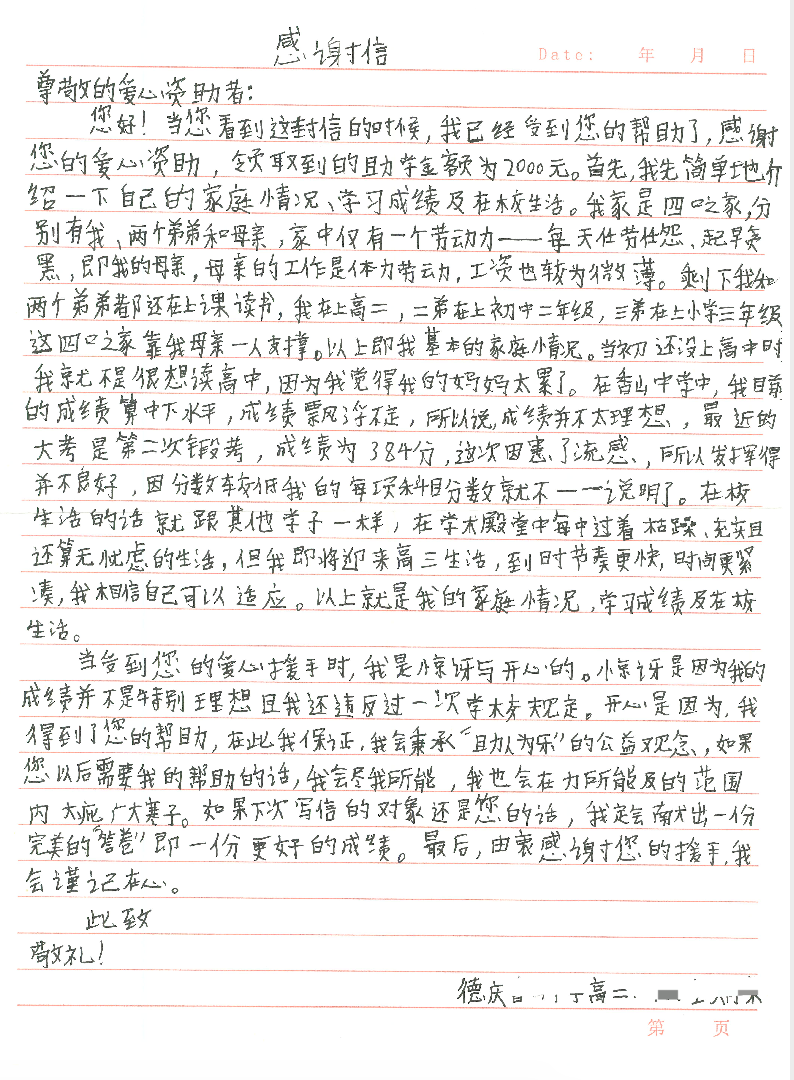 感谢信
Date: 年 月 日
尊敬的爱心资助者:
您好!当您看到这封信的时候,我已经受到您的帮助了,感谢
您的爱心资助,领取到的助学金额为2000元。首先,我先简单地介
绍一下自己的家庭情况、学习成绩及在校生活。我家是四口之家,分
别有我、两个弟弟和母亲,家中仅有一个劳动力——每天任劳任怨、起早贪
黑,即我的母亲,母亲的工作是体力劳动,工资也较为微薄。剩下我和
两个弟弟都还在上课读书,我在上高二,二弟在上初中二年级,三弟在上小学三年级
这四口之家靠我母亲一人支撑。以上即我基本的家庭情况。当初还没上高中时
我就不是很想读高中,因为我觉得我的妈妈太累了。在香山中学中,我目前
的成绩算中下水平,成绩飘浮不定,所以说,成绩并不太理想,最近的
大考是第二次段考,成绩为384分,这次因患了流感,所以发挥得
并不良好,因分数较低我的每项科目分数就不一一说明了。在校
生活的话就跟其他学子一样,在学术殿堂中每中过着枯躁、充实且
还算无忧虑的生活,但我即将迎来高三生活,到时节奏更快,时间更紧
凑,我相信自己可以适应。以上就是我的家庭情况,学习成绩及在校
生活。
当受到您的爱心援手时,我是惊讶与开心的。惊讶是因为我的
成绩并不是特别理想且我还违反过一次学校规定。开心是因为,我
得到了您的帮助,在此我保证,我会秉承“助人为乐”的公益观念,如果
您以后需要我的帮助的话,我会尽我所能,我也会在力所能及的范围
内大庇广大寒子。如果下次写信的对象还是您的话,我定会献出一份
完美的“答卷”即一份更好的成绩。最后,由衷感谢您的援手,我
会谨记在心。
此致
敬礼!
德庆 高二
第 页